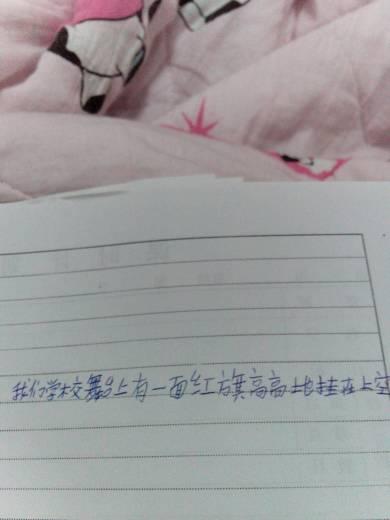 我们学校舞台上有一面红旗高高地挂在上空